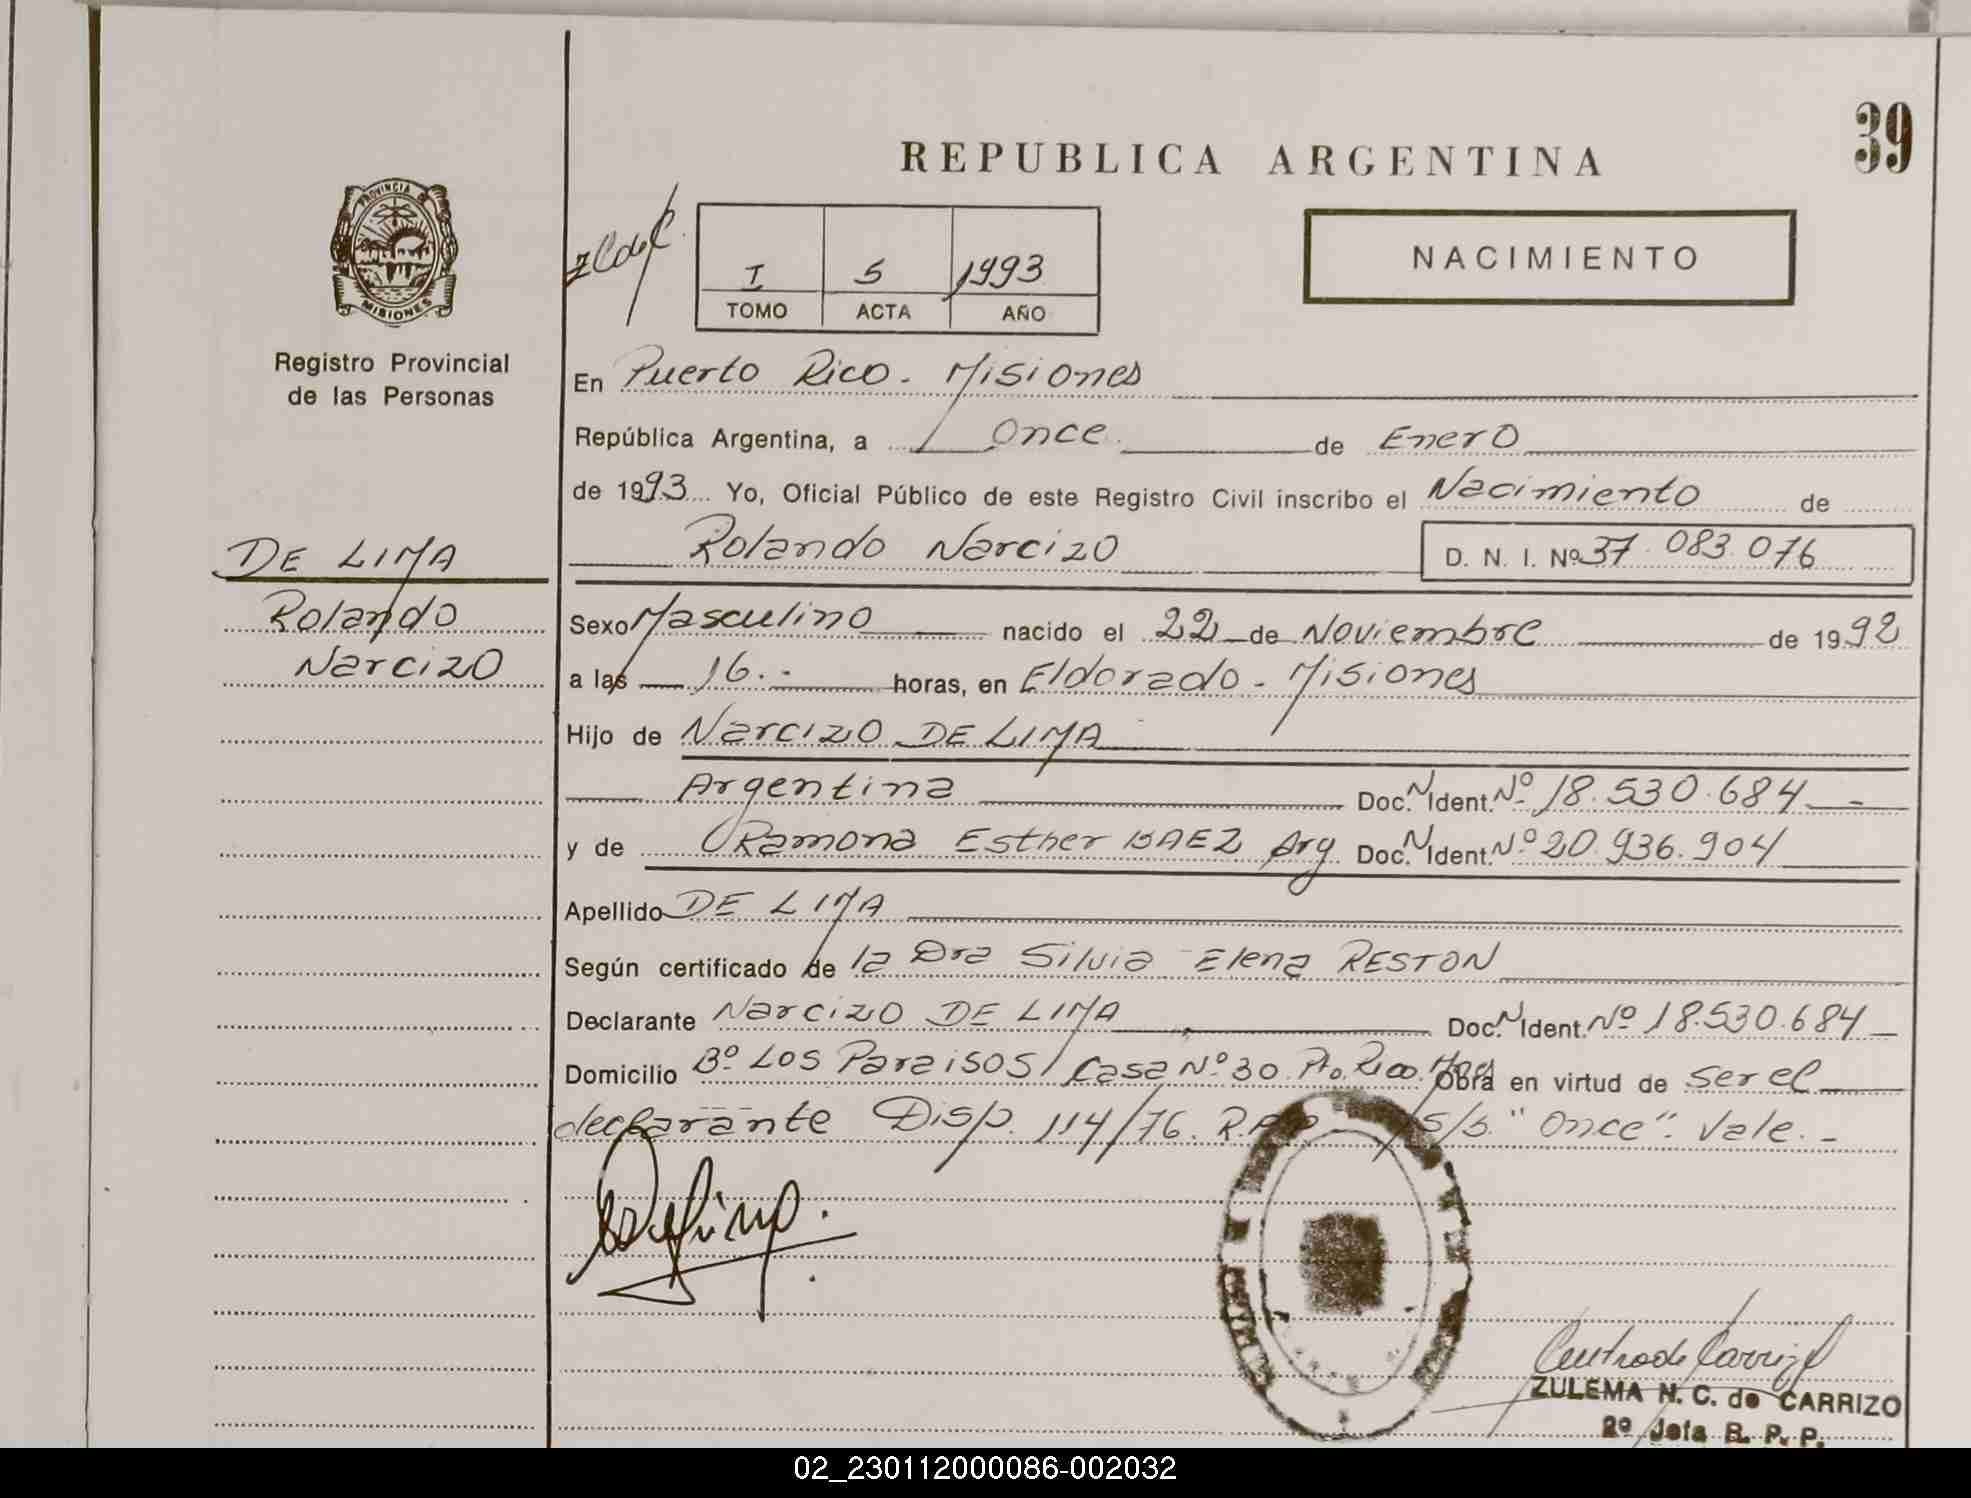 39
REPUBLICA ARGENTINA
PROVINCIA DE
MISIONES
Registro Provincial
de las Personas
ZCdeC.
I 5 1993
TOMO ACTA AÑO
NACIMIENTO
En Puerto Rico - Misiones
República Argentina, a Once de Enero
de 1993 Yo, Oficial Público de este Registro Civil inscribo el Nacimiento de
Rolando Narcizo D. N. I. Nº 37.083.076
DE LIMA
Rolando
Narcizo
Sexo Masculino nacido el 22 de Noviembre de 1992
a las 16.- horas, en Eldorado - Misiones
Hijo de Narcizo DE LIMA
Argentina Doc. N Ident. Nº 18.530.684 -
y de Ramona Esther BAEZ Arg Doc. N Ident. Nº 20.936.904
Apellido DE LIMA
Según certificado de la Dra Silvia Elena RESTON
Declarante Narcizo DE LIMA Doc. N Ident. Nº 18.530.684
Domicilio Bº Los Paraisos Casa Nº 30. Pto. Rico. Mnes Obra en virtud de ser el
declarante Disp. 114/76. R.P.P. S/b. "Once". Vale. -
ZULEMA N. C. de CARRIZO
2º Jefa R. P. P.
02_230112000086-002032